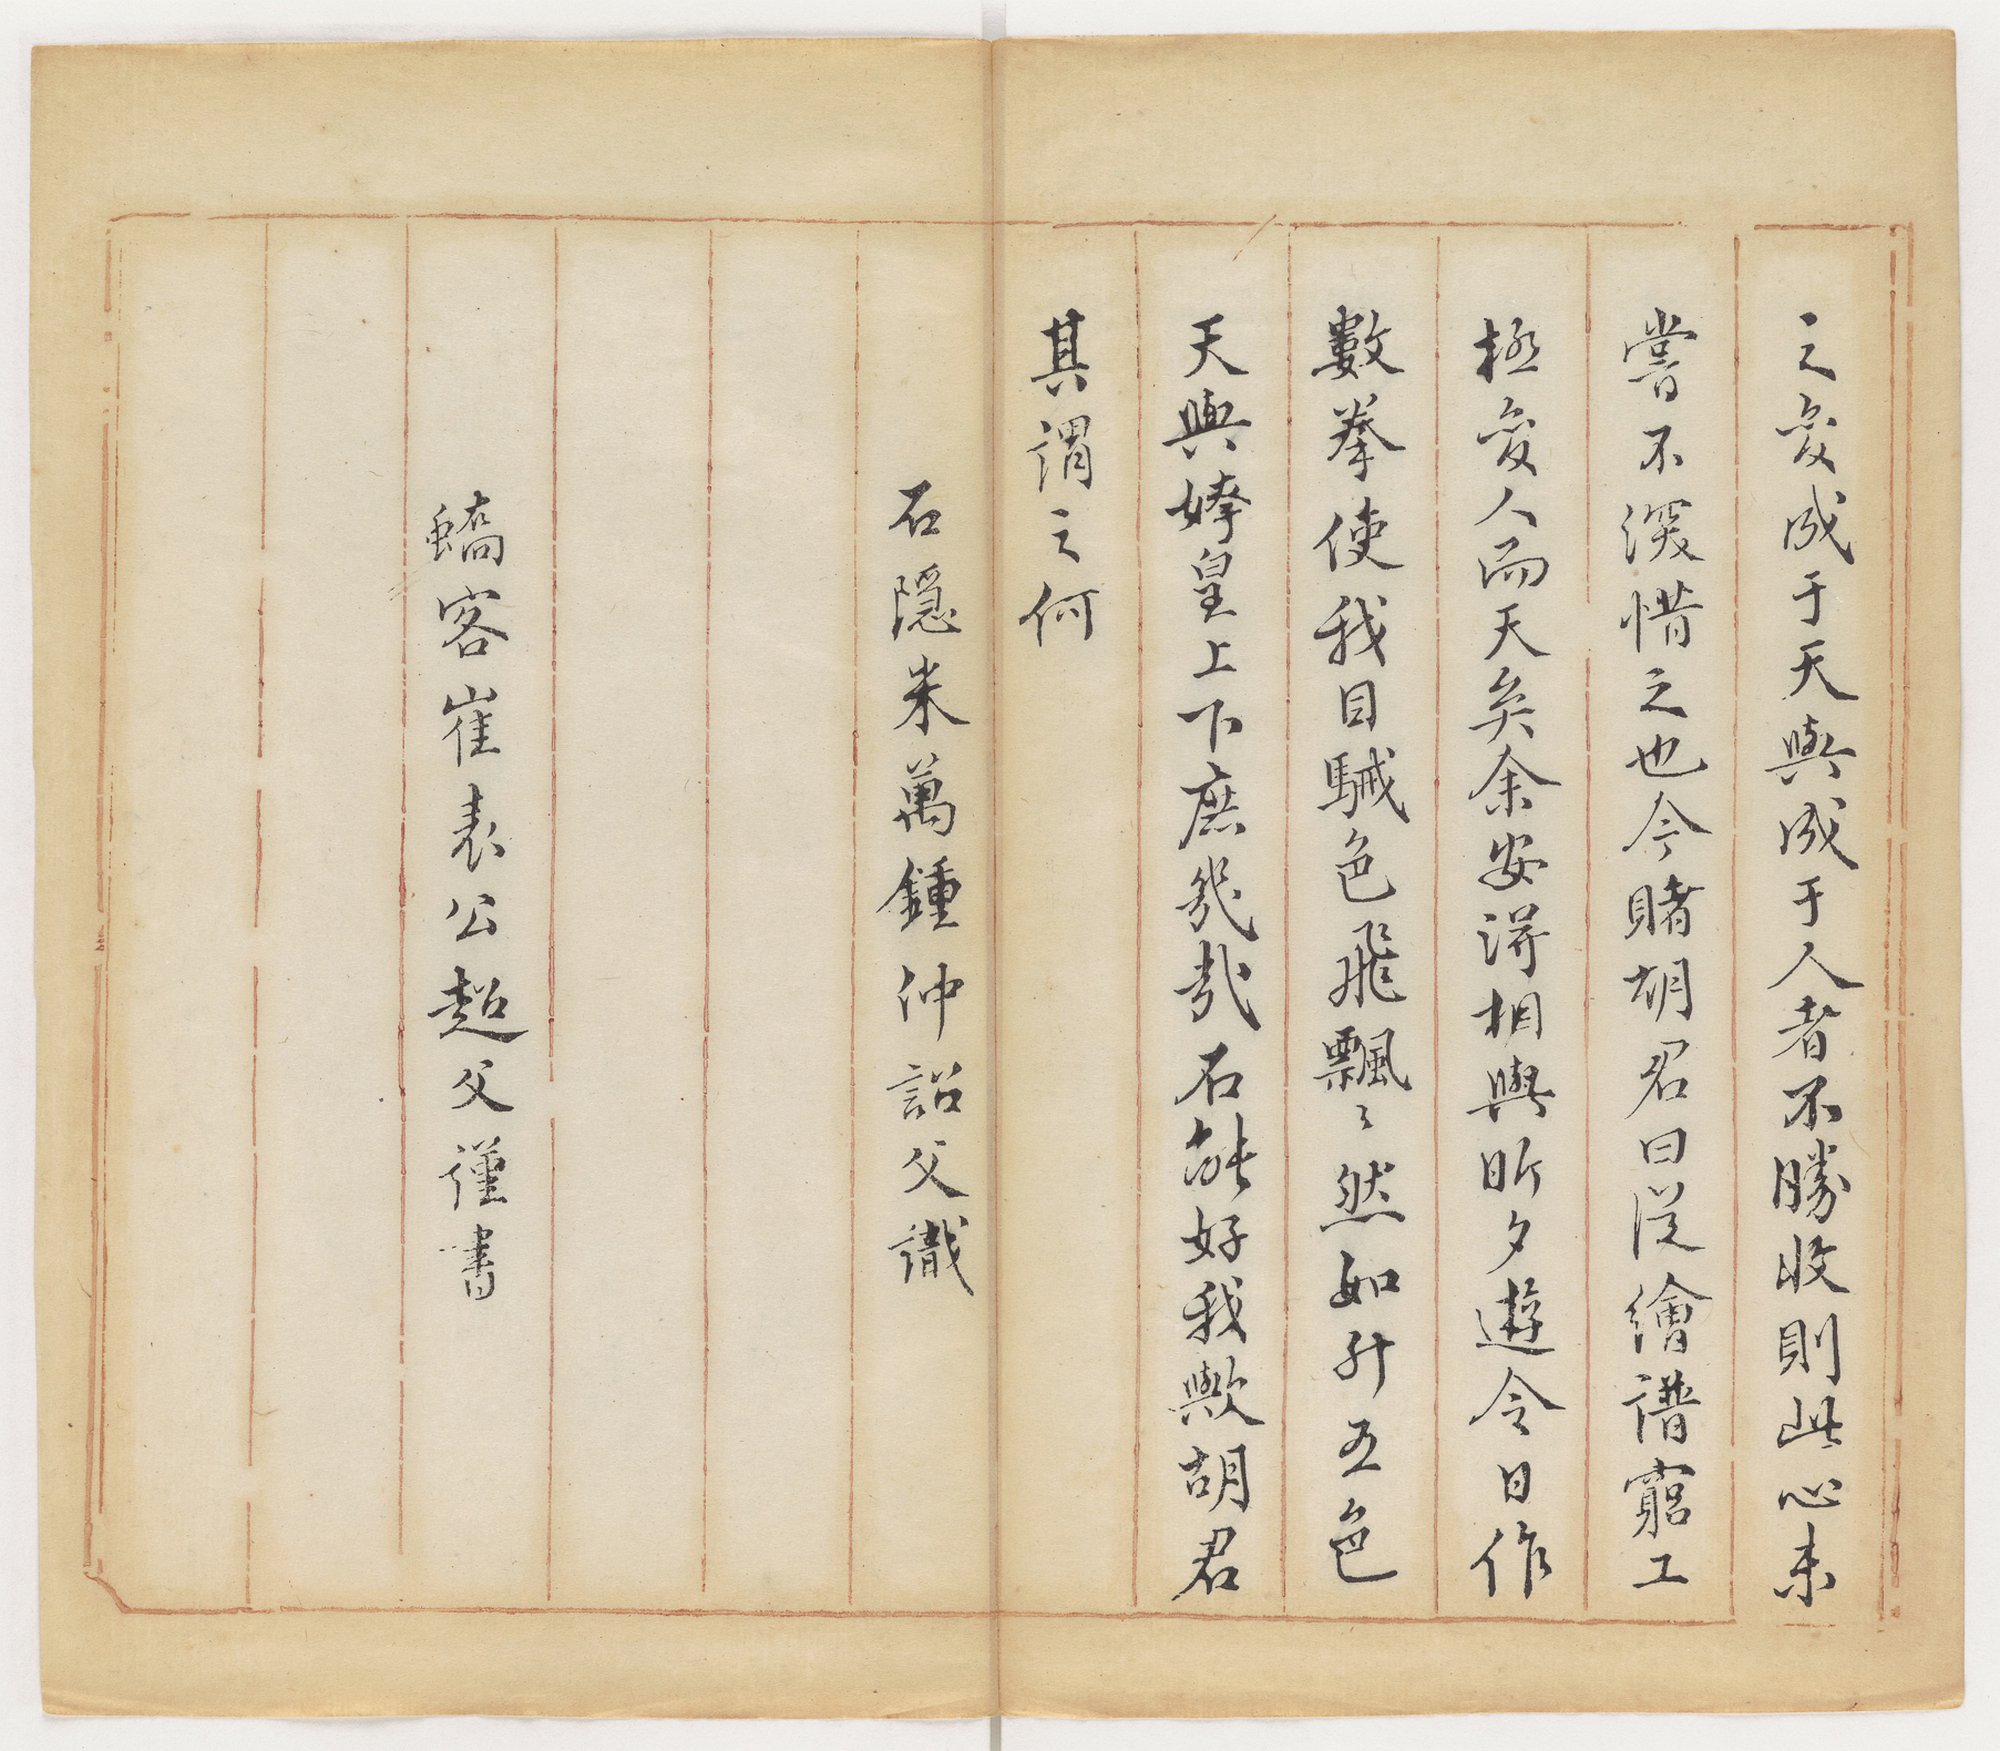 之变成于天與成于人者不勝收則此心未
嘗不深惜之也今睹胡君曰從繪譜窮工
極变人而天矣余安得相與昕夕遊令日作
數拳使我目駴色飛飄〻然如升五色
天與媠皇上下庶幾哉石能好我歟胡君
其謂之何
石隱米萬鍾仲詔父識
蟜客崔表公超父謹書